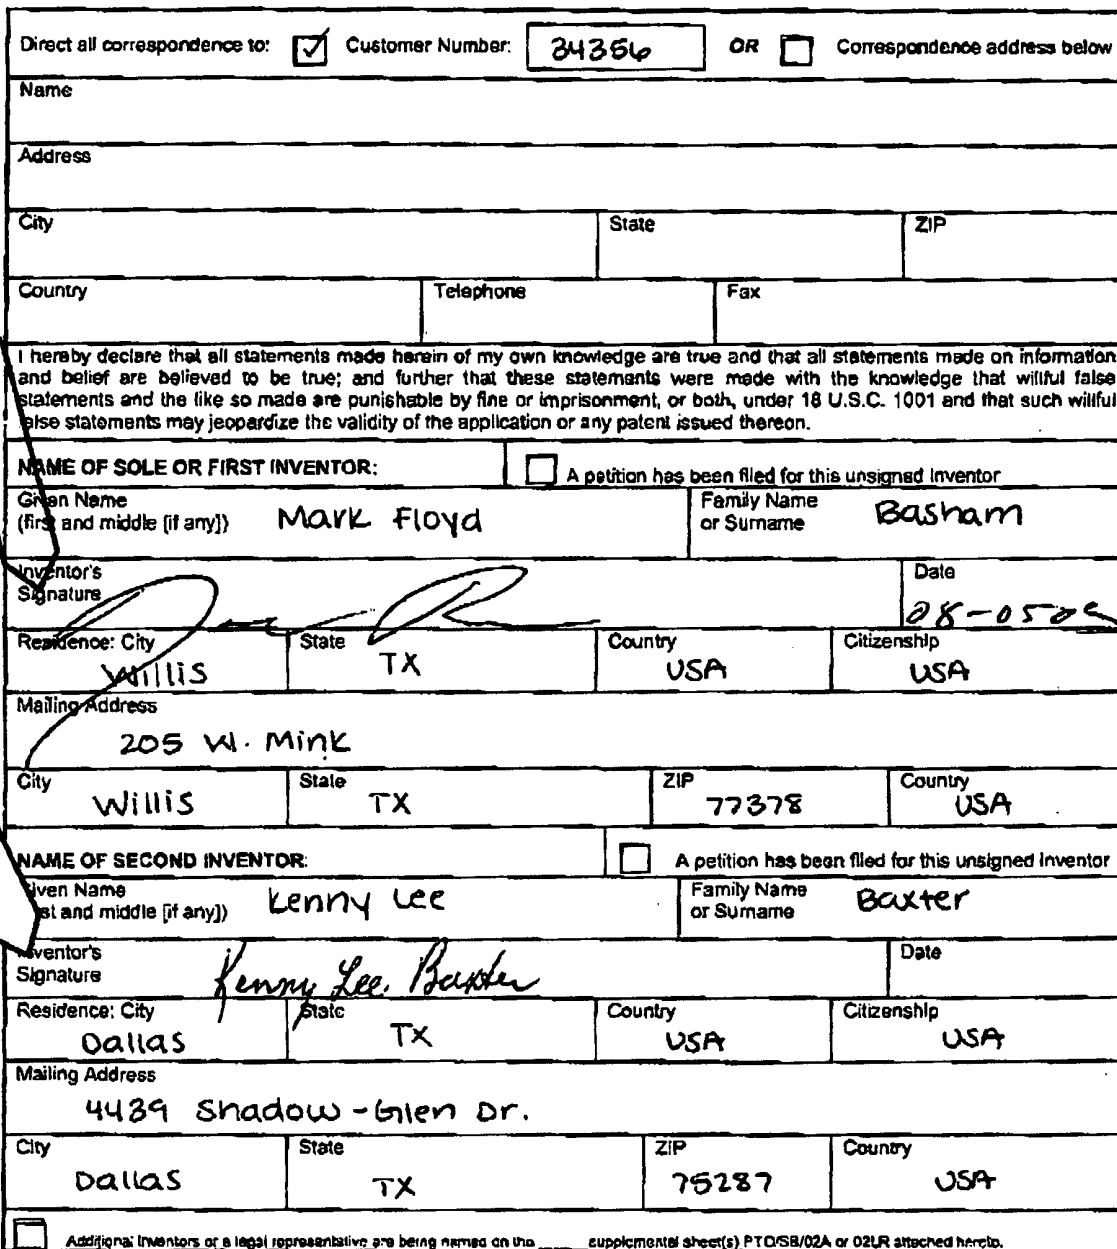 Direct all correspondence to: Customer Number: 34356 OR Correspondence address below
Name
Address
City State ZIP
Country Telephone Fax
I hereby declare that all statements made herein of my own knowledge are true and that all statements made on information
and belief are believed to be true; and further that these statements were made with the knowledge that willful false
statements and the like so made are punishable by fine or imprisonment, or both, under 18 U.S.C. 1001 and that such willful
false statements may jeopardize the validity of the application or any patent issued thereon.
NAME OF SOLE OR FIRST INVENTOR: A petition has been filed for this unsigned Inventor
Given Name Family Name
(first and middle [if any]) Mark Floyd or Surname Basham
Inventor's Date
Signature
Residence: City State Country Citizenship
Willis TX USA USA
Mailing Address
205 W. Mink
City State ZIP Country
Willis TX 77378 USA
NAME OF SECOND INVENTOR: A petition has been filed for this unsigned Inventor
Given Name Family Name
(first and middle [if any]) Kenny Lee or Surname Baxter
Inventor's Date
Signature Kenny Lee Baxter
Residence: City State Country Citizenship
Dallas TX USA USA
Mailing Address
4439 Shadow-Glen Dr.
City State ZIP Country
Dallas TX 75287 USA
Additional Inventors or a legal representative are being named on the ____ supplemental sheet(s) PTO/SB/02A or 02LR attached hereto.